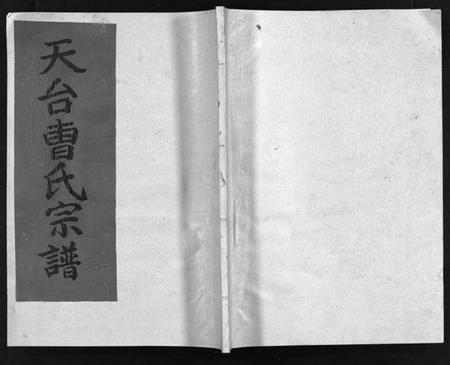 天台曹氏宗譜